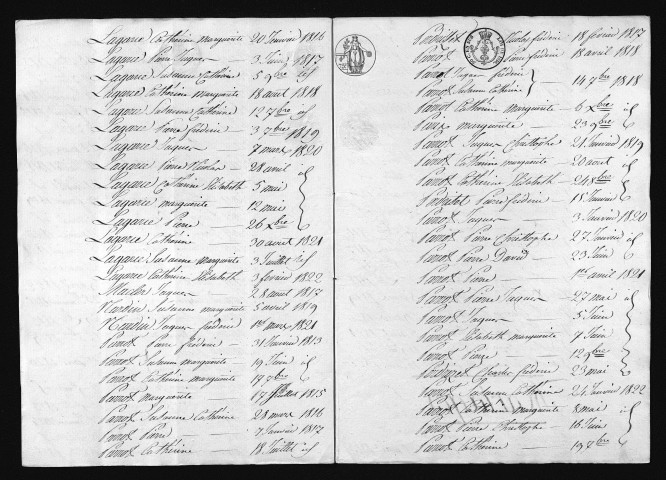 Lagarce Catherine marguerite 20 Janvier 1816
Lagarce Pierre Jaques 3 Juin 1817
Lagarce Susanne Catherine 5 9bre id
Lagarce Catherine marguerite 18 avril 1818
Lagarce Susanne Catherine 12 7bre id
Lagarce Pierre frederic 3 7bre 1819
Lagarce Jaques 7 mars 1820
Lagarce Pierre Nicolas 28 avril
Lagarce Catherine Elisabeth 5 mai id
Lagarce marguerite 12 mai
Lagarce Pierre 26 xbre
Lagarce Catherine 30 avril 1821
Lagarce Susanne marguerite 3 Juillet id
Lagarce Catherine Elisabeth 3 fevrier 1822
Jaques 28 avril 1817
Nardin Susanne marguerite 5 avril 1819
Nardin Jaques frederic 1er mars 1821
Parrot Pierre frederic 31 Janvier 1813
Parrot Susanne marguerite 19 Juin id
Parrot Catherine marguerite 17 7bre
Parrot Marguerite 17 1815
Parrot Susanne Catherine 28 mars 1816
Parrot Pierre 7 Janvier 1817
Parrot Catherine 18 Juillet id
Nicolas frederic 18 fevrier 1817
Parrot Pierre frederic 18 avril 1818
Parrot Jaques frederic
14 7bre 1818
Parrot Susanne Catherine
Parrot Catherine marguerite 6 xbre id
marguerite 23 9bre
Parrot Jaques Christophe 21 Janvier 1819
Parrot Catherine marguerite 20 avril id
Parrot Catherine Elisabeth 24 8bre
Pierre frederic 15 Janvier
Parrot Jaques 3 Janvier 1820
Parrot Pierre Christophe 27 Janvier id
Parrot Pierre David 23 Juin
Parrot Pierre 1er avril 1821
Parrot Pierre Jaques 27 mai id
Parrot Jaques 5 Juin
Parrot Elisabeth marguerite 7 Juin id
Parrot Pierre 12 9bre
Charles frederic 23 mai
Parrot Susanne Catherine 24 Janvier 1822
Parrot Catherine marguerite 8 mai id
Parrot Pierre Christophe 16 Juin
Parrot Catherine 19 7bre